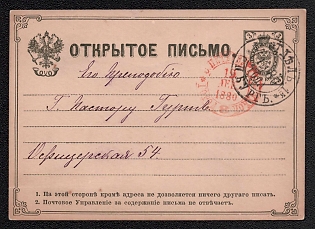 ОТКРЫТОЕ ПИСЬМО.
Его Преподобію
Г. Пастору Гуртъ
Офицерская 54.
1. На этой сторонѣ кромѣ адреса не дозволяется ничего другаго писать.
2. Почтовое Управленіе за содержаніе письма не отвѣчаетъ.
1880